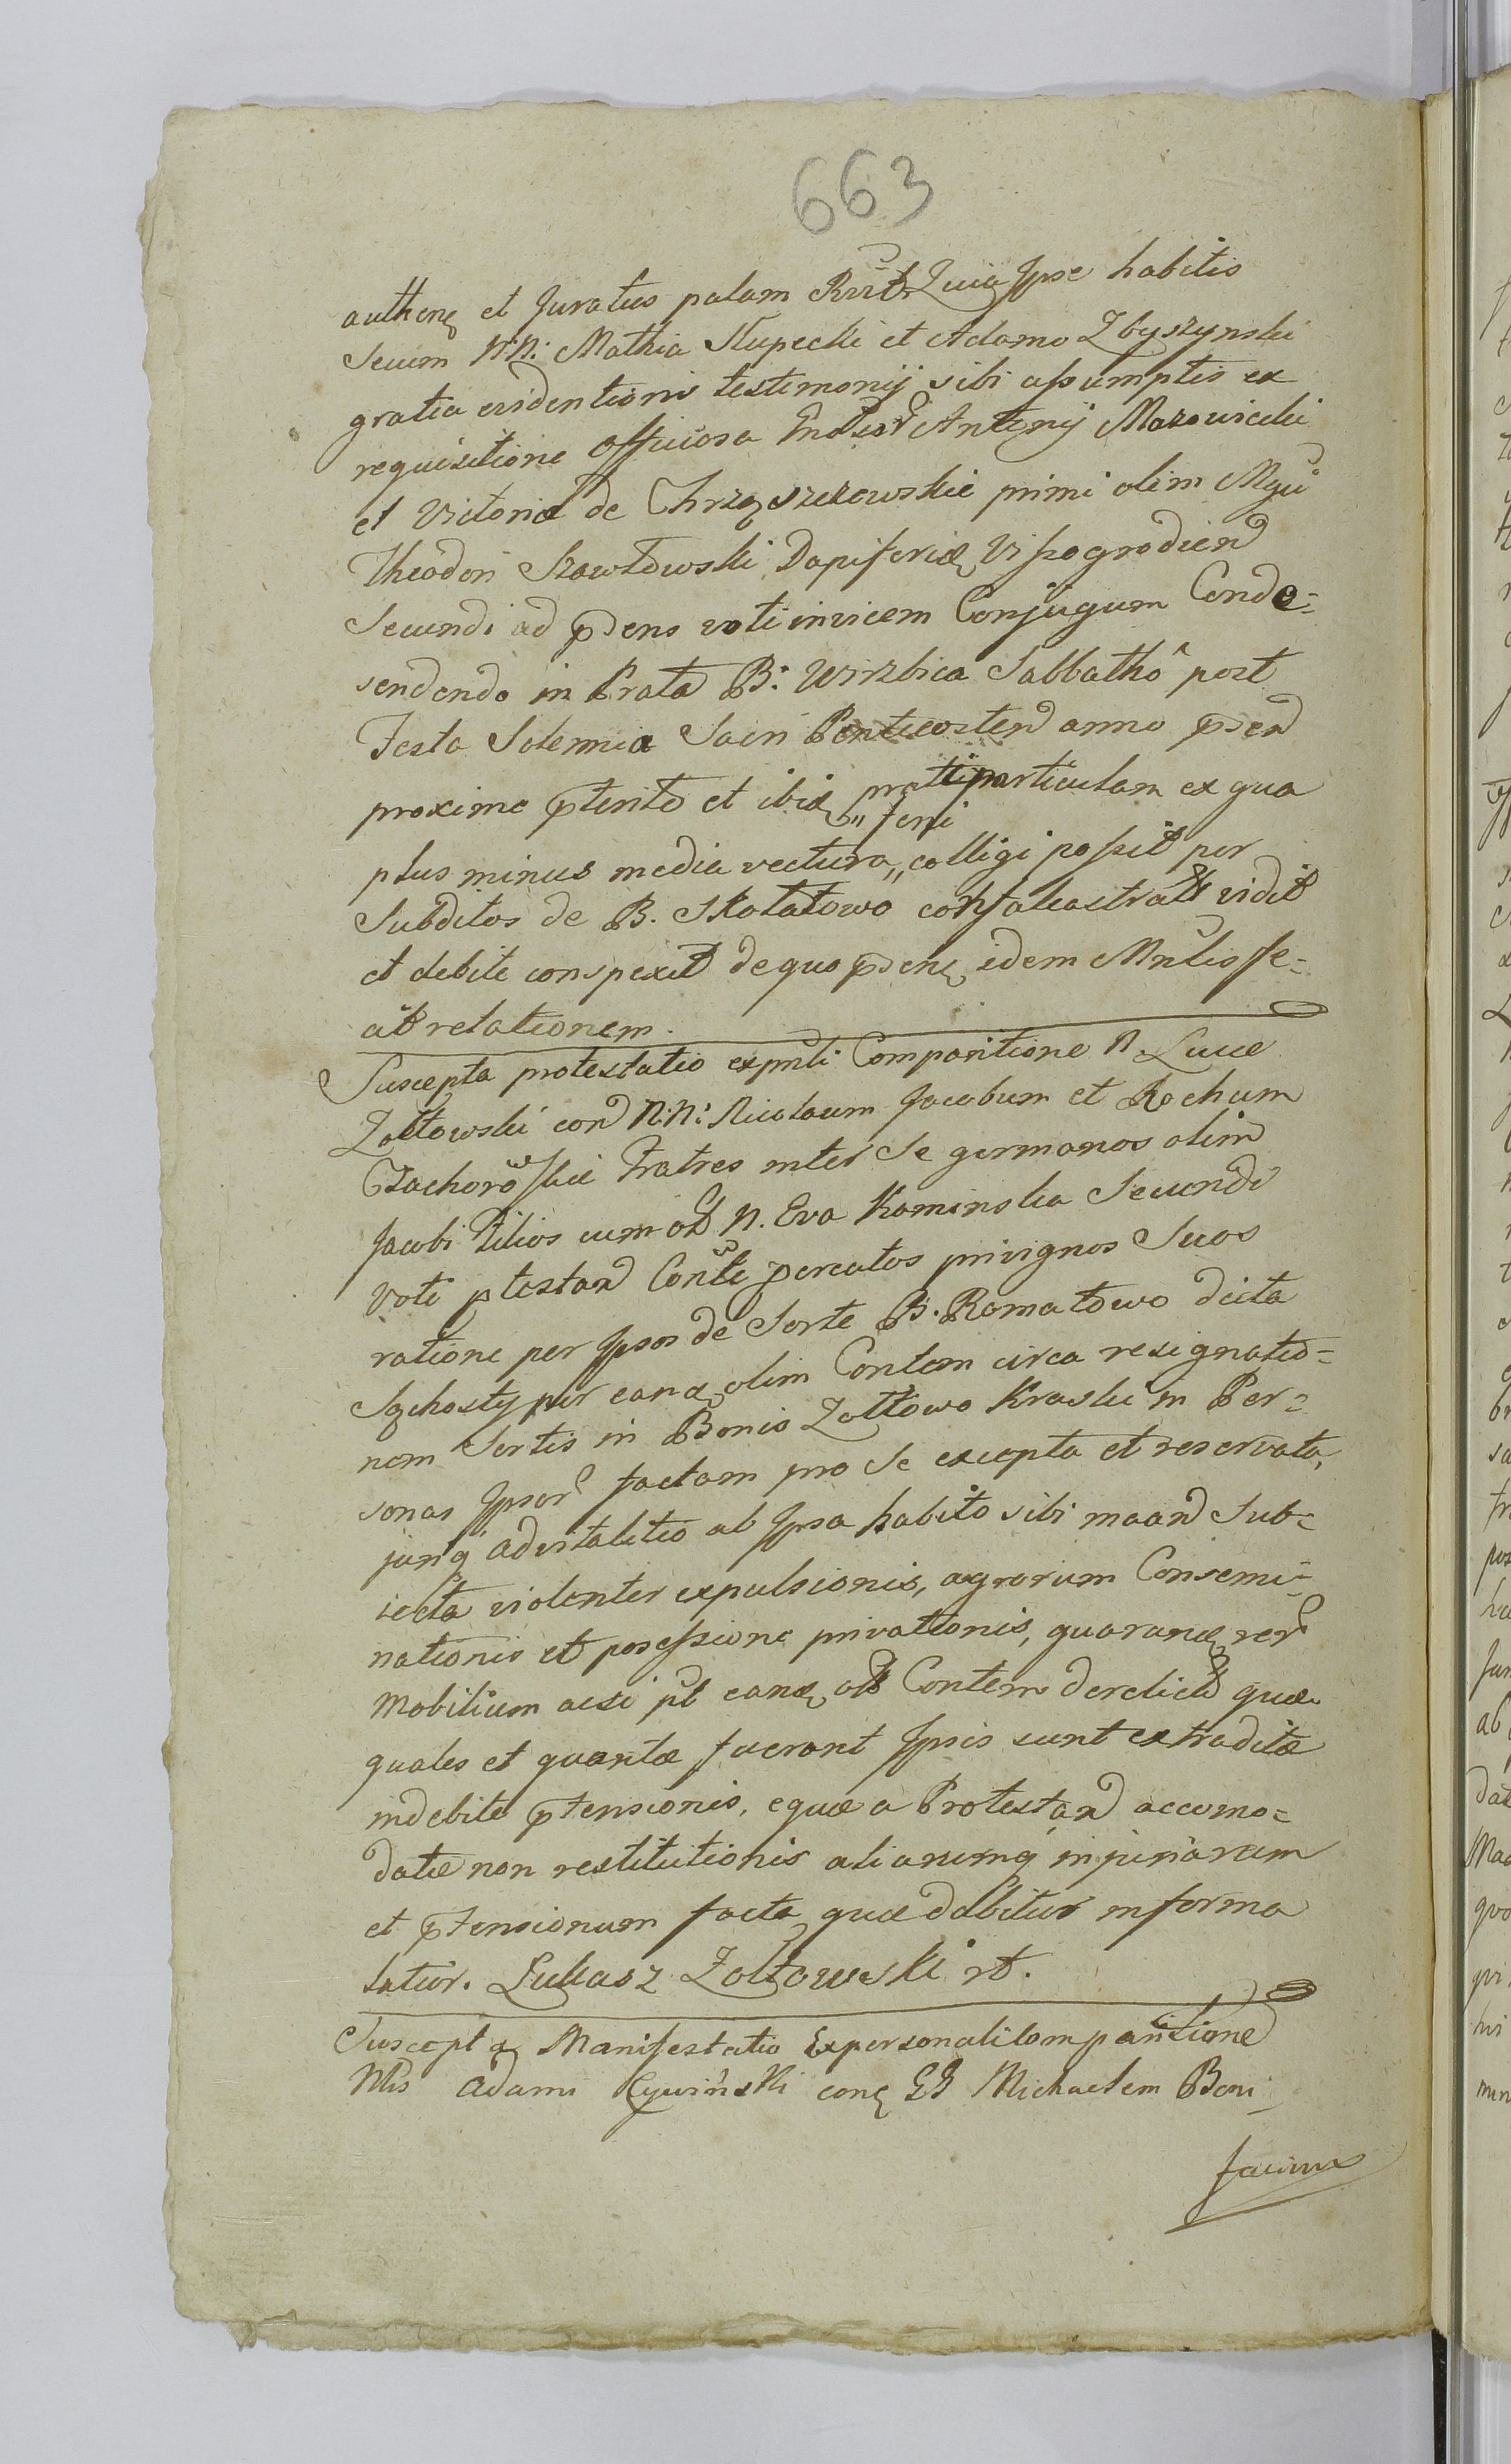 663
authenq et Juratus palam Rct. Quia Ipse habitis
Secum N:N: Mathia Słupecki et Adamo Zbyszynski
gratia evidentioris testimonij sibi assumptis ex
requisitione officiosa Antonij Mazowiecki
et Victoriæ de Chrząszczewskie primi olim Mgci
Theodori Szawłowski Dapiferidæ Viszogrodien
Secundi ad pdens voti invicem Conjugum Conde-
sendendo in Prata B: Wirzbica Sabbathô post
Festa Solennia Sacri Pentecosten anno pden
proxime pterito et ibid prati particulam ex qua
plus minus media vectura „feni„ colligi possit per
Subditos de B. Skołatowo confalcastratt vidit
et debite conspexit de quo pdens idem Mnlis fe-
cit relationem.
Suscepta protestatio expnli Comparitione N. Lucæ
Zołtowski con N:N: Nicolaum Jacobum et Rochum
Czachorowskie Fratres inter Se germanos olim
Jacobi Filios cum ol N. Eva Kaminska Secundi
Voti ptestan Conte percatos privignos Suos
ratione per Ipsos de Sorte B. Romatowo dicta
Sąchosty per eand olim Contem circa resignatio-
nem Sortis in Bonis Zołtowo Kraski in Per-
sonas Ipsor factam pro Se excepta et reservata,
junq advitalitio ab Ipsa habito sibi maan Sub-
iecta violenter expulsionis, agrorum Consemi-
nationis et possessione privationis, quarund rer
Mobilium acsi pt eand ol Contem derelict quæ
quales et quantæ fuerant Ipsis sunt extraditæ
indebite ptensionis, equæ a Protestan accomo-
datæ non restitutionis aliarumq injuriarum
et ptensionum facta quæ dabitur in forma
latior. Łukasz Zołtowski rt.
Suscepta Manifestatio Expersonali Comparitione
Mlis Adami Cywiński conq GG Michaelem Boni
facium